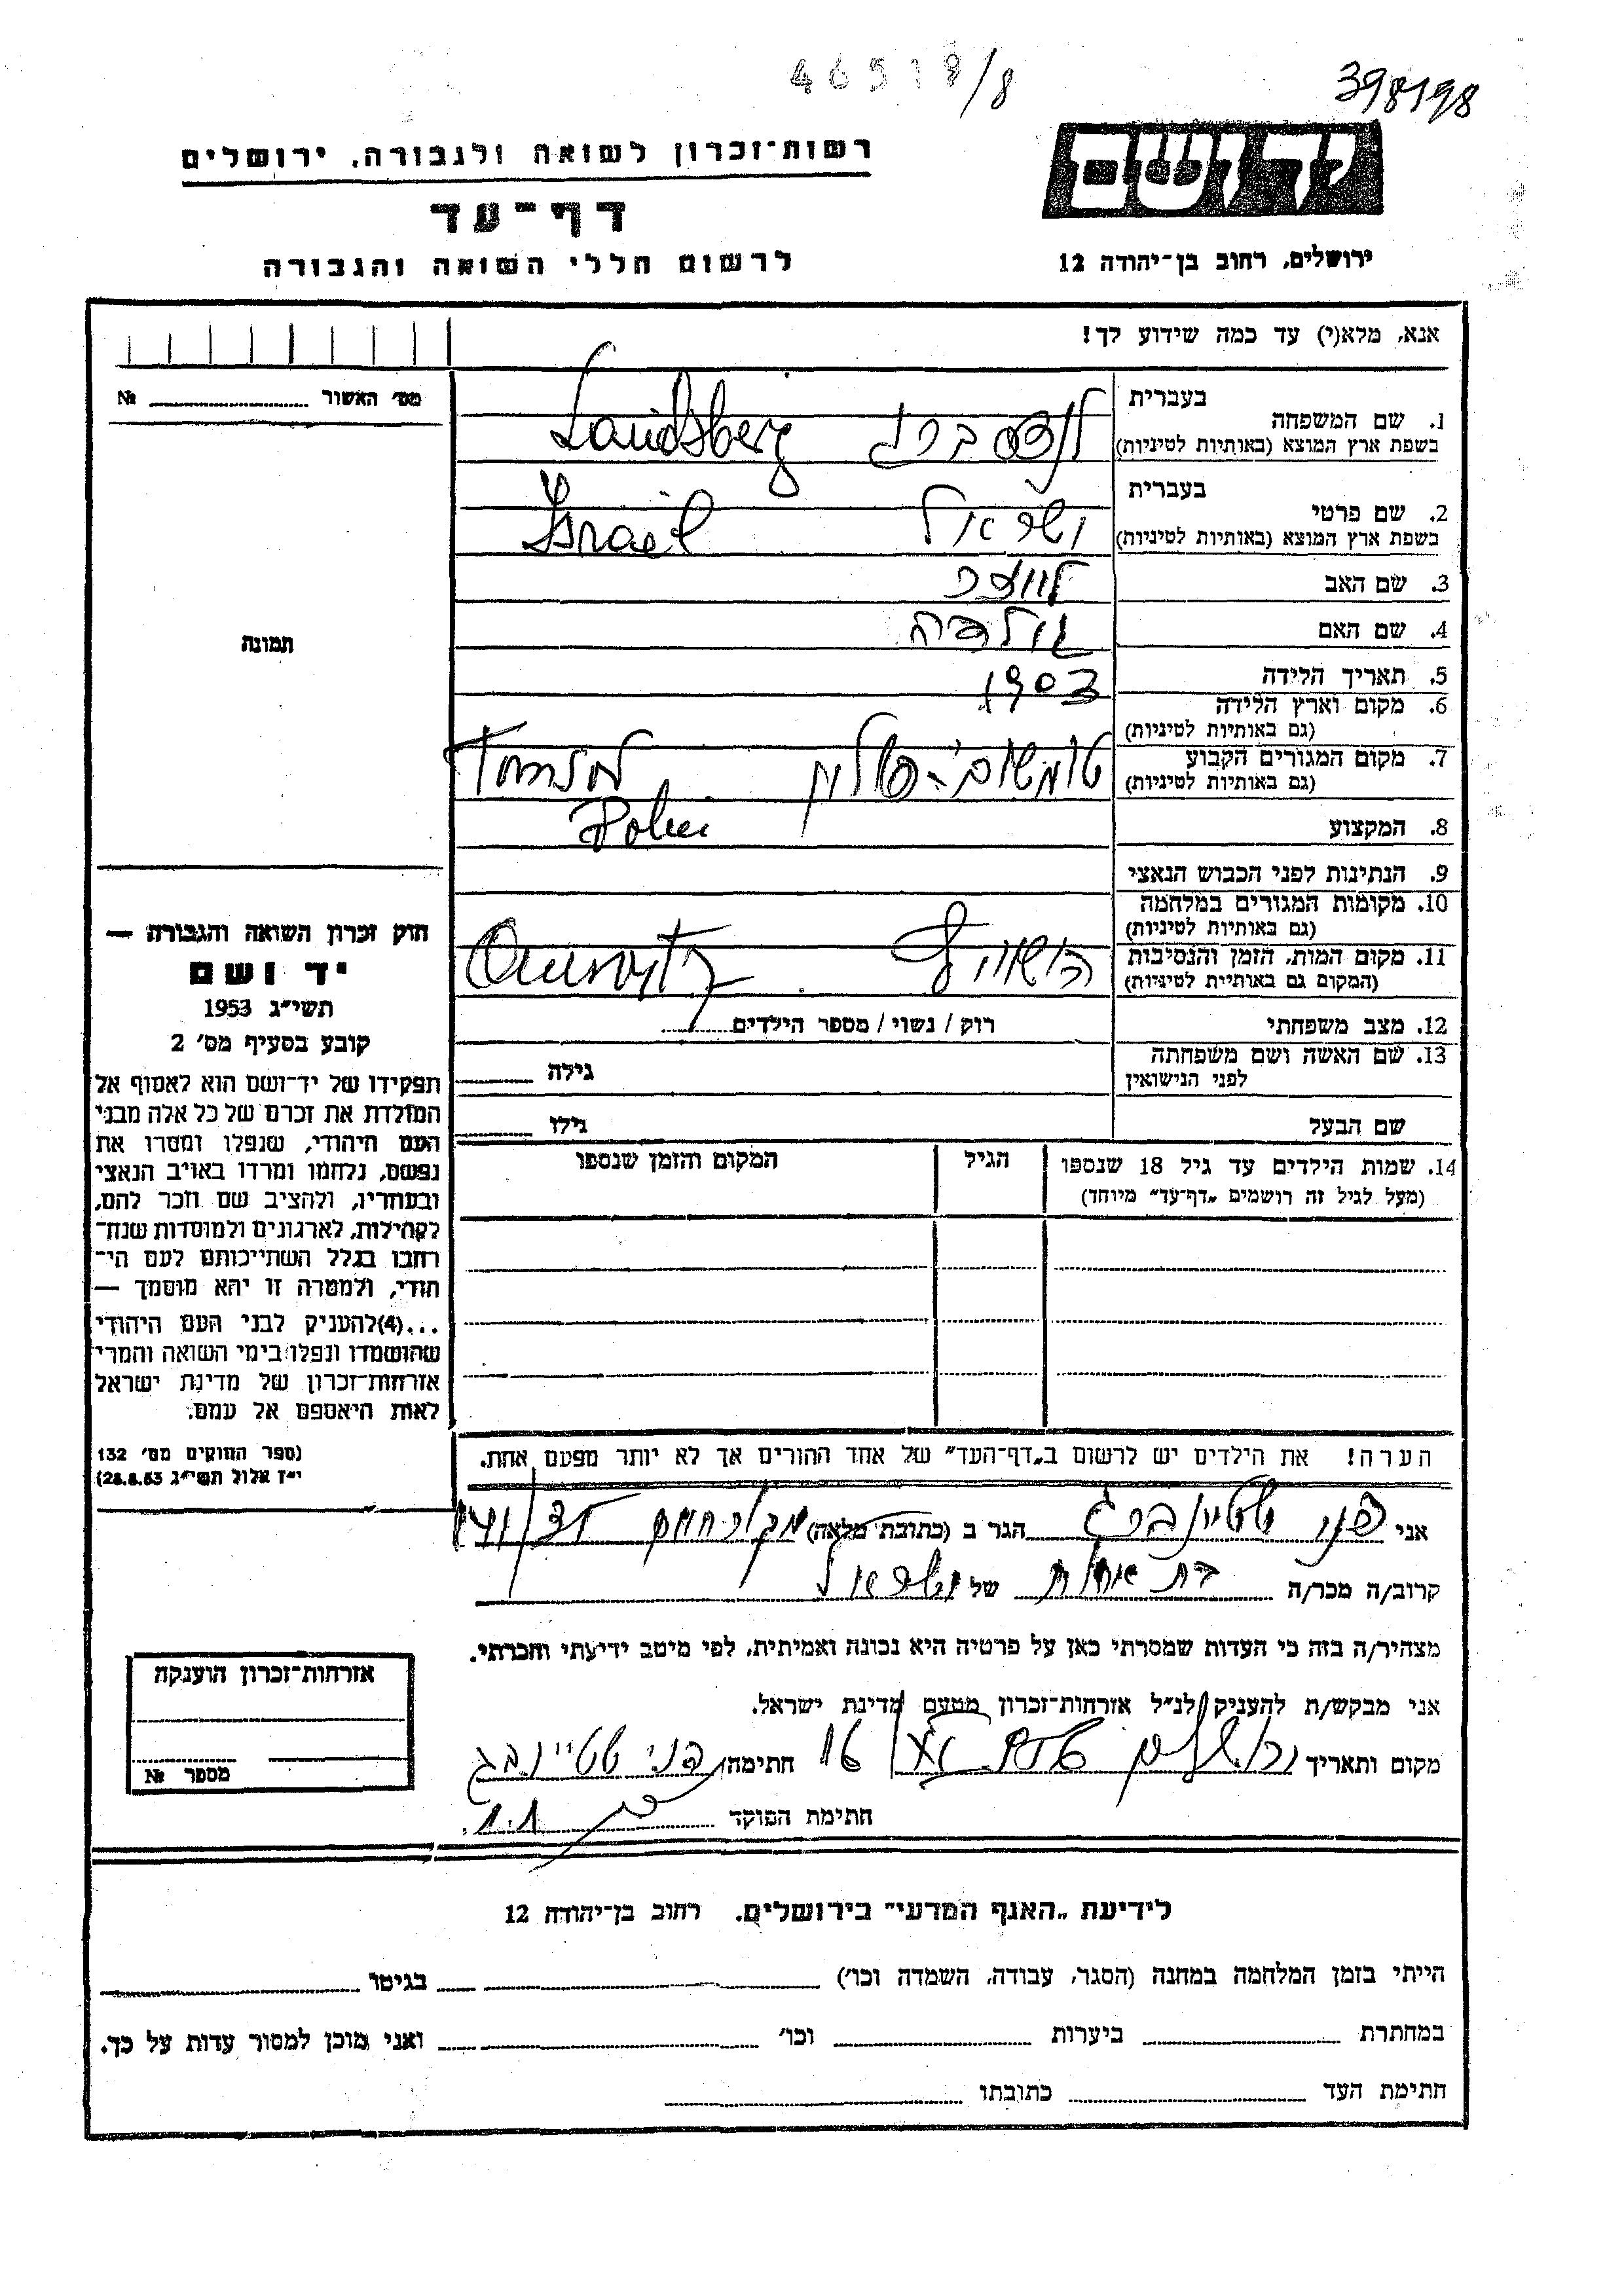 46519/8
398198
רשות־זכרון לשואה ולגבורה, ירושלים
דף־עד
לרשום חללי השואה והגבורה
יד ושם
ירושלים, רחוב בן־יהודה 12
אנא, מלא(י) עד כמה שידוע לך!
מס׳ האשור № 
1. שם המשפחה
בעברית
בשפת ארץ המוצא (באותיות לטיניות)
לנדסברג Landsberg
2. שם פרטי
בעברית
בשפת ארץ המוצא (באותיות לטיניות)
ישראל Israel
3. שם האב
4. שם האם
5. תאריך הלידה 1903
6. מקום וארץ הלידה
(גם באותיות לטיניות)
7. מקום המגורים הקבוע
(גם באותיות לטיניות)
פולין
Polen
8. המקצוע
9. הנתינות לפני הכבוש הנאצי
10. מקומות המגורים במלחמה
(גם באותיות לטיניות)
11. מקום המות, הזמן והנסיבות
(המקום גם באותיית לטיניות)
12. מצב משפחתי רוק / נשוי / מספר הילדים
13. שם האשה ושם משפחתה
לפני הנישואין
גילה
שם הבעל גילו
14. שמות הילדים עד גיל 18 שנספו
(מעל לגיל זה רושמים „דף־עד” מיוחד)
הגיל
המקום והזמן שנספו
תמונה
חוק זכרון השואה והגבורה —
יד ושם
תשי״ג 1953
קובע בסעיף מס׳ 2
תפקידו של יד־ושם הוא לאסוף אל
המולדת את זכרם של כל אלה מבני
העם היהודי, שנפלו ומסרו את
נפשם, נלחמו ומרדו באויב הנאצי
ובעוזריו, ולהציב שם וזכר להם,
לקהילות, לארגונים ולמוסדות שנח־
רבו בגלל השתייכותם לעם הי־
הודי, ולמטרה זו יהא מוסמך —
...(4)להעניק לבני העם היהודי
שהושמדו ונפלו בימי השואה והמרי
אזרחות־זכרון של מדינת ישראל
לאות היאספם אל עמם.
(ספר החוקים מס׳ 132
י״ז אלול תשי״ג 28.8.53)
הערה! את הילדים יש לרשום ב„דף־העד” של אחד ההורים אך לא יותר מפעם אחת.
אני פני שטיינברג הגר ב (כתובת מלאה)
קרוב/ה מכר/ה בת אחות של ישראל
מצהיר/ה בזה כי העדות שמסרתי כאן על פרטיה היא נכונה ואמיתית, לפי מיטב ידיעתי והכרתי.
אני מבקש/ת להעניק לנ״ל אזרחות־זכרון מטעם מדינת ישראל.
מקום ותאריך ירושלים 16 חתימה פני שטיינברג
חתימת הפוקד
אזרחות־זכרון הוענקה
מספר №
לידיעת „האגף המדעי” בירושלים, רחוב בן־יהודה 12
הייתי בזמן המלחמה במחנה (הסגר, עבודה, השמדה וכו׳) בגיטו
במחתרת ביערות וכו׳ ואני מוכן למסור עדות על כך.
חתימת העד כתובתו